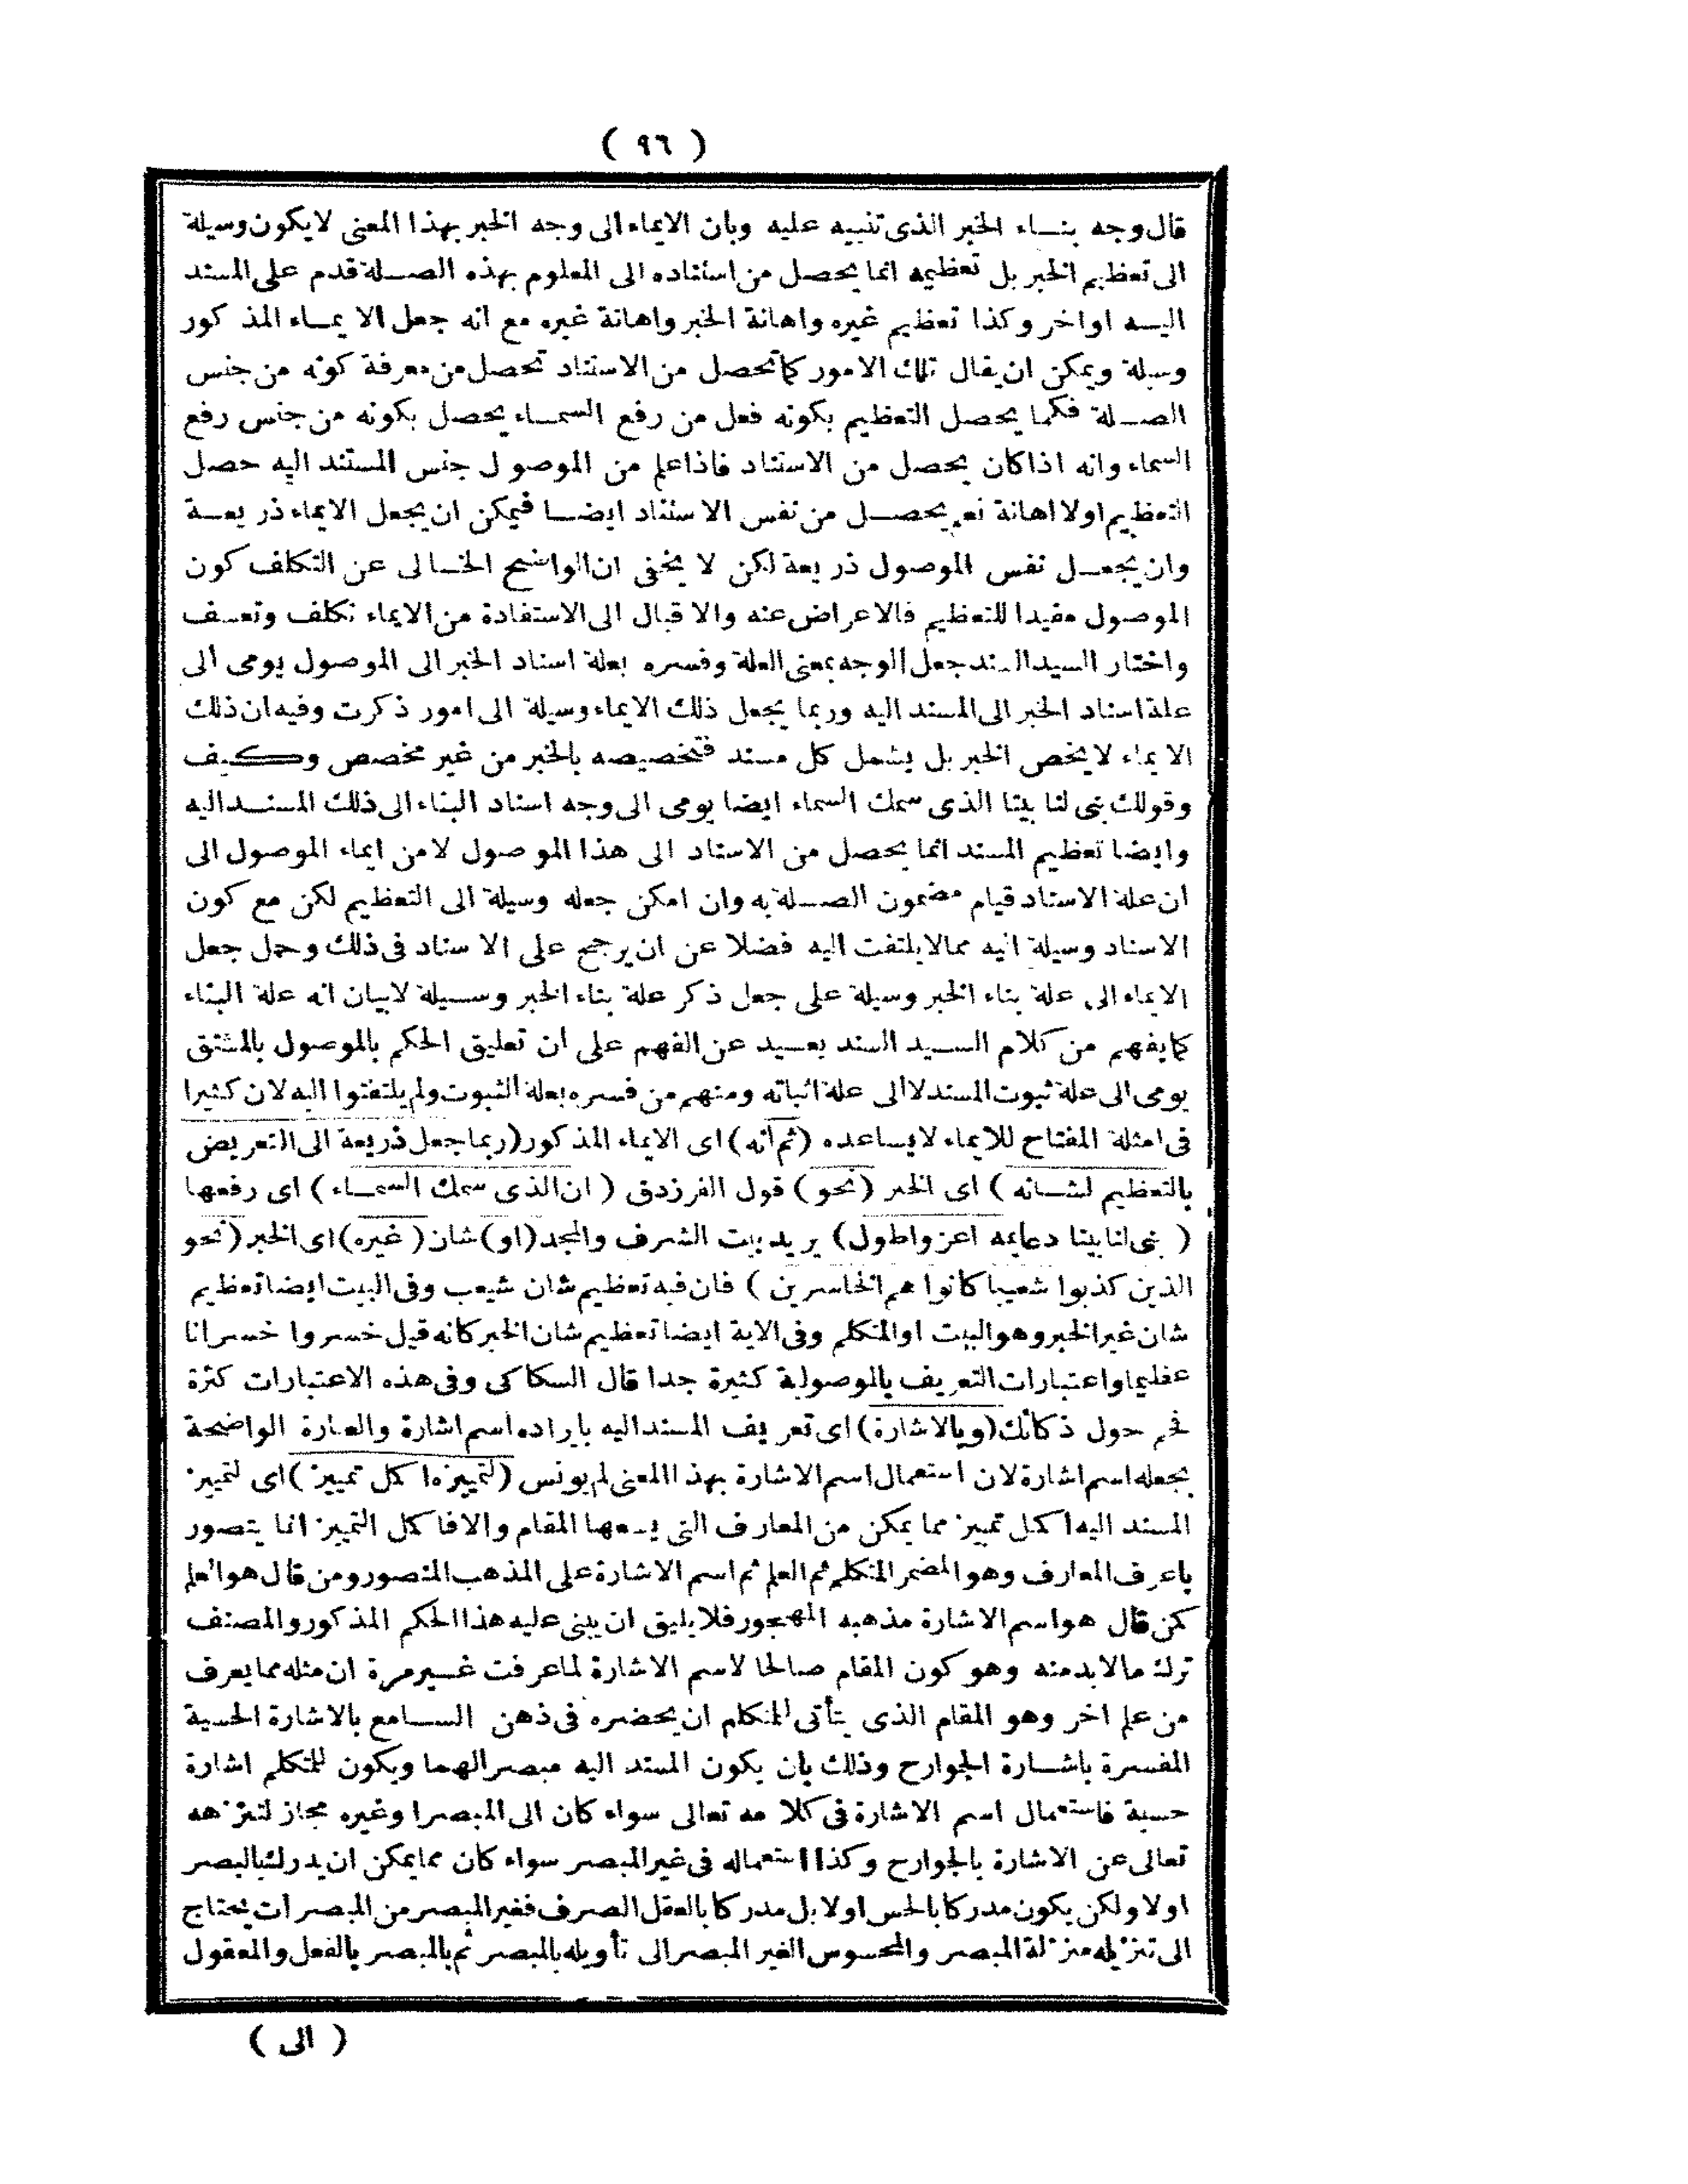 ( ٩٦ )
قال وجه بناء الخبر الذى تنبيه عليه وبان الايماء الى وجه الخبر بهذا المعنى لا يكون وسيلة
الى تعظيم الخبر بل تعظيمه انما يحصل من استناده الى المعلوم بهذه الصلة قدم على المسند
اليه او اخر وكذا تعظيم غيره واهانة الخبر واهانة غيره مع انه جعل الايماء المذكور
وسيلة ويمكن ان يقال تلك الامور كما تحصل من الاستناد تحصل من معرفة كونه من جنس
الصلة فكما يحصل التعظيم بكونه فعل من رفع السماء يحصل بكونه من جنس رفع
السماء وانه اذا كان يحصل من الاستناد فاذا علم من الموصول جنس المستند اليه حصل
التعظيم اولا اهانة نعم يحصل من نفس الاستناد ايضا فيمكن ان يجعل الايماء ذريعة
وان يجعل نفس الموصول ذريعة لكن لا يخفى ان الواضح الخالى عن التكلف كون
الموصول مفيدا للتعظيم فالاعراض عنه والاقبال الى الاستفادة من الايماء تكلف وتعسف
واختار السيد السند جعل الوجه بمعنى العلة وفسره بعلة اسناد الخبر الى الموصول يومى الى
علة اسناد الخبر الى المسند اليه وربما يجعل ذلك الايماء وسيلة الى امور ذكرت وفيه ان ذلك
الايماء لا يخص الخبر بل يشمل كل مسند فتخصيصه بالخبر من غير مخصص وكيف
وقولك بنى لنا بيتا الذى سمك السماء ايضا يومى الى وجه اسناد البناء الى ذلك المسند اليه
وايضا تعظيم المسند انما يحصل من الاسناد الى هذا الموصول لا من ايماء الموصول الى
ان علة الاسناد قيام مضمون الصلة به وان امكن جعله وسيلة الى التعظيم لكن مع كون
الاسناد وسيلة اليه مما لا يلتفت اليه فضلا عن ان يرجح على الاسناد فى ذلك وحمل جعل
الايماء الى علة بناء الخبر وسيلة على جعل ذكر علة بناء الخبر وسيلة لا بيان انه علة البناء
كما يفهم من كلام السيد السند بعيد عن الفهم على ان تعليق الحكم بالموصول بالمشتق
يومى الى علة ثبوت المسند لا الى علة اثباته ومنهم من فسره بعلة الثبوت ولم يلتفتوا اليه لان كثيرا
فى امثلة المفتاح للايماء لا يساعده (ثم انه) اى الايماء المذكور (ربما جعل ذريعة الى التعريض
بالتعظيم لشانه) اى الخبر (نحو) قول الفرزدق (ان الذى سمك السماء) اى رفعها
(بنى لنا بيتا دعائمه اعز واطول) يريد بيت الشرف والمجد (او) شان (غيره) اى الخبر (نحو
الذين كذبوا شعيبا كانوا هم الخاسرين) فان فيه تعظيم شان شيعب وفى البيت ايضا تعظيم
شان غير الخبر وهو البيت او المتكلم وفى الاية ايضا تعظيم شان الخبر كانه قيل خسروا خسرانا
عظيما واعتبارات التعريف بالموصولية كثيرة جدا قال السكاكى وفى هذه الاعتبارات كثرة
فحم حول ذكائك (وبالاشارة) اى تعريف المسند اليه بايراده اسم اشارة والعبارة الواضحة
بجعله اسم اشارة لان استعمال اسم الاشارة بهذا المعنى لم يونس (لتمييزه اكمل تمييز) اى لتمييز
المسند اليه اكمل تمييز مما يمكن من المعارف التى يسعها المقام والا فاكمل التمييز انما يتصور
باعرف المعارف وهو المضمر المتكلم ثم العلم ثم اسم الاشارة على المذهب المنصور ومن قال هو العلم
كمن قال هو اسم الاشارة مذهبه المهجور فلا يليق ان يبنى عليه هذا الحكم المذكور والمصنف
ترك ما لا بد منه وهو كون المقام صالحا لاسم الاشارة لما عرفت غير مرة ان مثله مما يعرف
من علم اخر وهو المقام الذى يتأتى للمتكلم ان يحضره فى ذهن السامع بالاشارة الحسية
المفسرة باشارة الجوارح وذلك بان يكون المسند اليه مبصرا لهما ويكون للمتكلم اشارة
حسية فاستعمال اسم الاشارة فى كلامه تعالى سواء كان الى المبصر او غيره مجاز لتنزهه
تعالى عن الاشارة بالجوارح وكذا استعماله فى غير المبصر سواء كان مما يمكن ان يدرك بالبصر
اولا ولكن يكون مدركا بالحس اولا بل مدركا بالعقل الصرف فغير المبصر من المبصرات يحتاج
الى تنزيله منزلة المبصر والمحسوس الغير المبصر الى تأويله بالمبصر ثم بالمبصر بالفعل والمعقول
( الى )